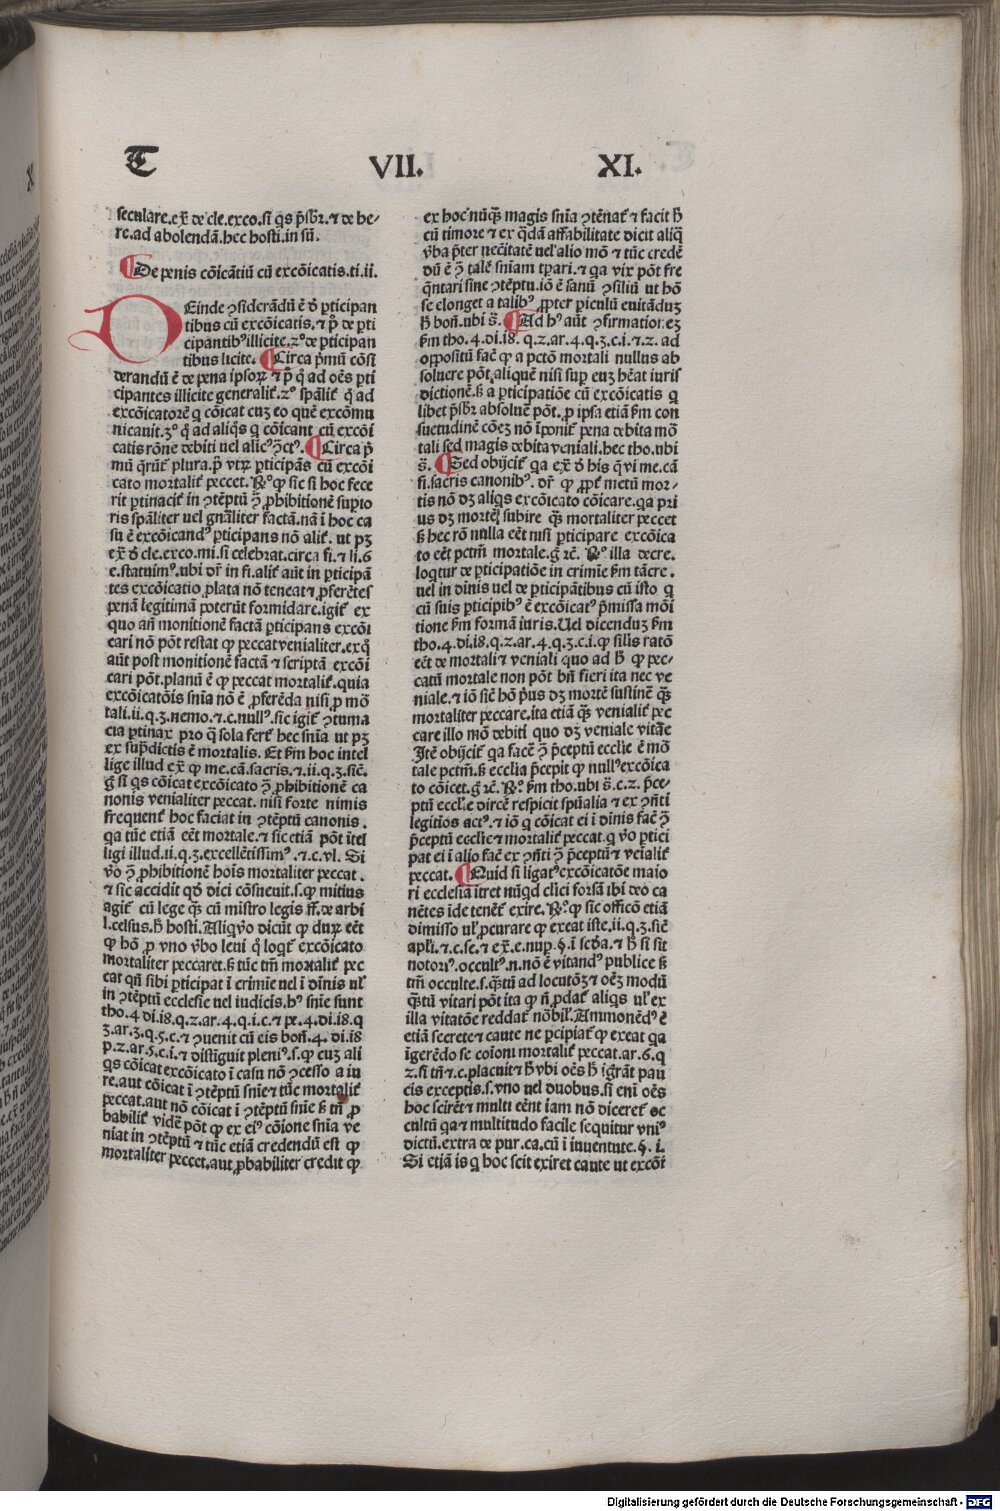 T VII. XI.
seculare.ex̄ de cle.exco.si qs p̄sbr̄.⁊ de he-
re.ad abolendā.hec hosti.in sū.
De penis cōicātiū cū excōicatis.ti.ii.
DEinde ꝯsiderādū ē d̓ ꝑticipan
tibus cū excōicatis.⁊ pͦ de ꝑti
cipantibꝰ illicite.2º de ꝑticipan
tibus licite. Circa pͥmū cōsi
derandū ē de pena ipsoꝝ ⁊ pͦ qͥ ad oēs ꝑti
cipantes illicite generalit̓.2º spālit̓ qͥ ad
excōicatorē q cōicat cuꝫ eo quē excōmu
nicauit.3º qͥ ad aliqͦs q cōicant cū excōi
catis rōne debiti uel alicꝰ ꝯctꝰ. Circa pͥ
mū q̄rūt̓ plura.pͦ vtꝝ ꝑticipās cū excōi
cato mortalit̓ peccet. R̄º ꝙ sic si hoc fece
rit ꝑtinacit̓ in ꝯtēptū ꝯ̄ ꝓhibitionē supio
ris spāliter uel gnāliter factā.nā i hoc ca
su ē excōicandꝰ ꝑticipans nō alit̓. ut pꝫ
ex̄ d̓ cle.exco.mi.si celebrat.circa fi.⁊ li.6
c.statuimꝰ.ubi dr̄ in fi.alit̓ aūt in ꝑticipā
tes excōicatio ꝓlata nō teneat ⁊ ꝓferētes
penā legitimā poterūt formidare.igit̓ ex
quo an̄ monitionē factā ꝑticipans excōi
cari nō pōt restat ꝙ peccat venialiter.exq̊
aūt post monitionē factā ⁊ scriptā excōi
cari pōt.planū ē ꝙ peccat mortalit̓.quia
excōicatōis snīa nō ē ꝓferēda nisi ꝓ mō
tali.ii.q.3.nemo.⁊.c.nullꝰ.sic igit̓ ꝯtuma
cia ꝑtinax pro q̄ sola fert̓ hec snīa ut pꝫ
ex supͣdictis ē mortalis. Et ẜm hoc intel
lige illud ex̄ ꝙ me.cā.sacris.⁊.ii.q.3.sic̄.
ḡ si qs cōicat excōicato ꝯ̄ ꝓhibitionē ca
nonis venialiter peccat. nisi forte nimis
frequent̓ hoc faciat in ꝯtēptū canonis.
qa tūc etiā eēt mortale.⁊ sic etiā pōt ītel
ligi illud.ii.q.3.excellētissimꝰ.⁊.c.vl. Si
v̓o ꝯ̄ ꝓhibitionē hoīs mortaliter peccat.
⁊ sic accidit qd̓ dici cōsueuit.s.ꝙ mitius
agit̓ cū lege qͣꝫ cū mīstro legis ff.de arbi
l.celsus.h̄ hosti. Aliqͥ v̓o dicūt ꝙ durꝝ eēt
ꝙ hō ꝓ vno v̓bo leui qͥ loqͥt̓ excōicato
mortaliter peccaret.ꝫ tūc tm̄ mortalit̓ pec
cat qn̄ sibi ꝑticipat i crimīe uel i dīnis ul̓
in ꝯtēptū ecclesie uel iudicis.hꝰ snīe sunt
tho.4 di.18.q.2.ar.4.q.i.c.⁊ pe.4.di.18.q
3.ar.3.q.5.c.⁊ ꝯuenit cū eis bon̄.4. di.18
p.2.ar.5.c.i.⁊ distiguit pleniꝰ.s.ꝙ cuꝫ ali
qs cōicat excōicato i casu nō ꝯcesso a iu
re.aut cōicat i ꝯtēptū snīe ⁊ tūc mortalit̓
peccat.aut nō cōicat i ꝯtēptū snīe ꝫ tn̄ ꝓ
babilit̓ vidē pōt ꝙ ex eiꝰ cōione snīa ve
niat in ꝯtēptū ⁊ tūc etiā credendū est ꝙ
mortaliter peccet.aut ꝓbabiliter credit ꝙ
ex hoc nūqͣꝫ magis snīa ꝯtēnat̓ ⁊ facit h̄
cū timore ⁊ ex qͣdā affabilitate dicit aliq̄
v̓ba p̄ter necītatē uel alio mō ⁊ tūc credē
dū ē ꝯ̄ talē snīam tpari.⁊ qa vix pōt fre
qͣntari sine ꝯtēptu.iō ē sanū ꝯsiliū ut hō
se elonget a talibꝰ ꝓpter piculū euitāduꝫ
h̄ bon̄.ubi s̄. Ad hꝰ aūt ꝯfirmatiōeꝫ
ẜm tho.4.di.18. q.2.ar.4.q.3.c.i.⁊.2. ad
oppositū fac̄ ꝙ a pctō mortali nullus ab
soluere pōt aliquē nisi sup euꝫ hēat iuris
dictionē.ꝫ a ꝑticipatiōe cū excōicatis q
libet p̄sbr̄ absoluē pōt. ꝓ ipsa etiā ẜm con
suetudinē cōeꝫ nō īponit̓ pena debita mō
tali sed magis debita veniali.hec tho.ubi
s̄. Sed obijcit̓ qa ex̄ d̓ his q̄ vi me.cā
fi.sacris canonibꝰ. dr̄ ꝙ ꝓpt̓ metū mor-
tis nō dꝫ aliqs excōicato cōicare.qa pri
us dꝫ mortē subire qͣꝫ mortaliter peccet
ꝫ hec rō nulla eēt nisi ꝑticipare excōica
to eēt pctm̄ mortale.ḡ rē. R̄º illa decre.
loqͥtur de ꝑticipatiōe in crimīe ẜm tācre.
uel in dīnis uel de ꝑticipātibus cū isto q
cū suis ꝑticipibꝰ ē excōicatꝰ p̄missa mōi
tione ẜm formā iuris. Uel dicenduꝫ ẜm
tho.4.di.18.q.2.ar.4.q.3.c.i.ꝙ silis ratō
eēt de mortali ⁊ veniali quo ad h̄ ꝙ pec-
catū mortale non pōt bn̄ fieri ita nec ve
niale.⁊ iō sic̄ hō pͥus dꝫ mortē sustinē qͣꝫ
mortaliter peccare.ita etiā qͣꝫ venialit̓ pec
care illo mō debiti quo dꝫ veniale vitāe
Itē obijcit̓ qa facē ꝯ̄ p̄ceptū ecclīe ē mō
tale pctm̄.ꝫ ecclīa p̄cepit ꝙ nullꝰ excōica
to cōicet.ḡ rē. R̄º ẜm tho.ubi s̄.c.2. p̄ce-
ptū ecclīe dircē respicit spūalia ⁊ ex ꝯn̄ti
legitīos actꝰ.⁊ iō q cōicat ei i dīnis fac̄ ꝯ̄
p̄ceptū ecclīe ⁊ mortalit̓ peccat.q v̓o ꝑtici
pat ei i alio fac̄ ex ꝯn̄ti ꝯ̄ p̄ceptū ⁊ veīalit̓
peccat. Quid si ligatꝰ excōicatōe maio
ri ecclesiā ītret nūqͥd cl̓ici forsā ibi deō ca
nētes īde tenēt̓ exire. R̄º ꝙ sic officō etiā
dimisso ul̓ ꝓcurare ꝙ exeat iste.ii.q.3.sic̄
apl̓i.⁊.c.se.⁊ ex̄.e.nup.§.i scd̓a.⁊ h̄ si sit
notorꝰ.occultꝰ.n.nō ē vitandꝰ publice ꝫ
tm̄ occulte.s.qͣꝫtū ad locutōꝫ ⁊ oēꝫ modū
qͣꝫtū vitari pōt ita ꝙ n̄ ꝓdat̓ aliqs ul̓ ex
illa vitatōe reddat̓ nōbil̓. Ammonēdꝰ ē
etiā secrete ⁊ caute ne ꝑcipiat̓ ꝙ exeat qa
īgerēdo se coīoni mortalit̓ peccat.ar.6.q
2.si tn̄ ⁊.c.placuit ⁊ h̄ vbi oēs h̄ igͦrāt pau
cis exceptis.s.vno uel duobus.si enī oēs
hoc scirēt ⁊ multi eēnt iam nō diceret̓ oc
cultū qa ⁊ multitudo facile sequitur vniꝰ
dictū.extra de pur.ca.cū i iuuentute.§.i.
Si etiā is q hoc scit exiret caute ut excōi
Digitalisierung gefördert durch die Deutsche Forschungsgemeinschaft - DFG